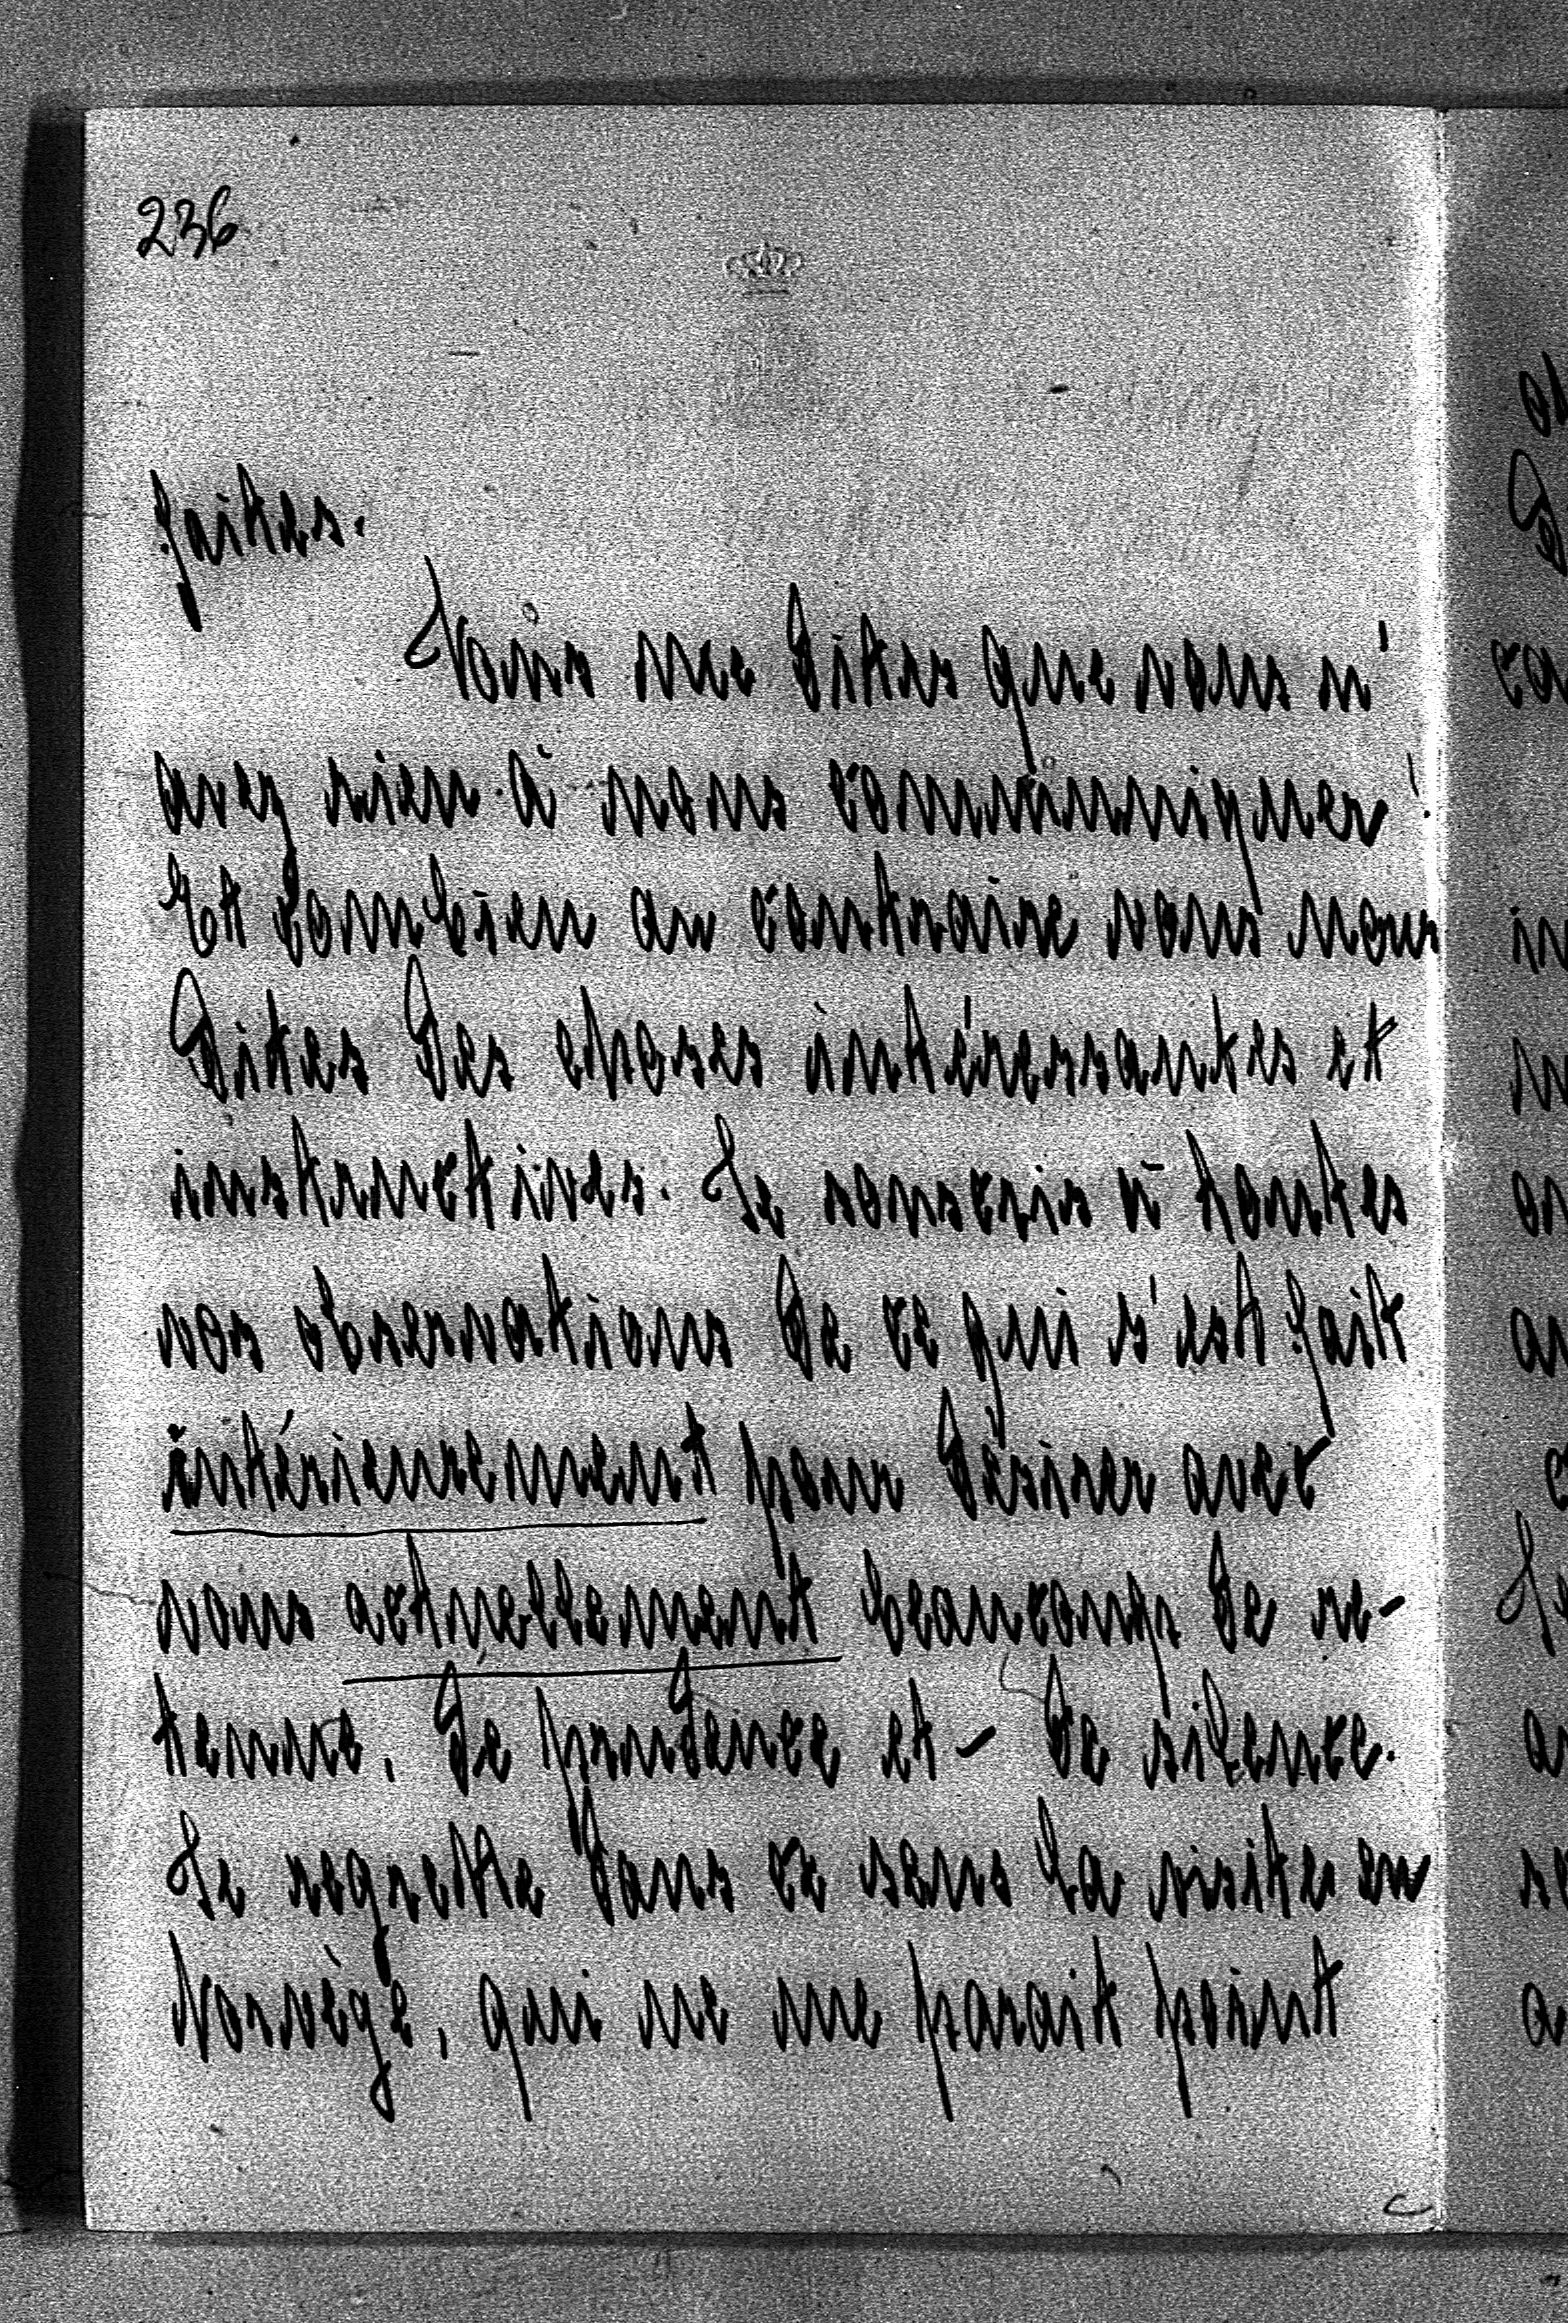 236
faites.
Vous me dites que vous n'
avez rien à nous communiquer!
Et combien au contraire vous nous
dites des choses intéressantes et
instructives. Je souscris à toutes
vos observations de ce qui s'est fait
intérieurement pour désirer avec
vous actuellement beaucoup de re-
tenue, de prudence et - de silence.
Je regrette dans ce sens la visite en
Norvège, qui ne me parait point